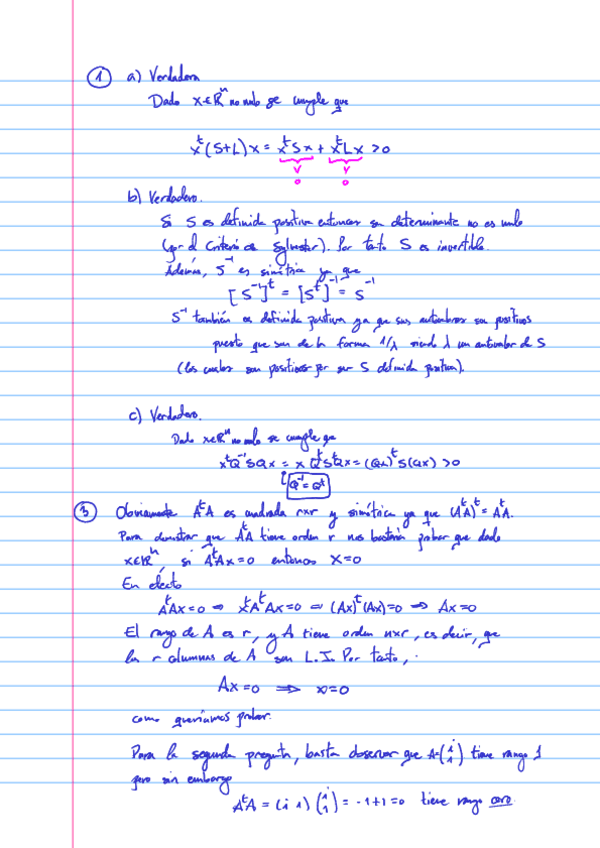 ① a) Verdadera
Dado x∈ℝⁿ no nulo se cumple que
xᵗ(S+L)x = xᵗSx + xᵗLx > 0
v v
0 0
b) Verdadero.
Si S es definida positiva entonces su determinante no es nulo
(por el criterio de Sylvester). Por tanto S es invertible.
Además, S⁻¹ es simétrica ya que
[S⁻¹]ᵗ = [Sᵗ]⁻¹ = S⁻¹
S⁻¹ también es definida positiva ya que sus autovalores son positivos
puesto que son de la forma 1/λ siendo λ un autovalor de S
(los cuales son positivos por ser S definida positiva).
c) Verdadero.
Dado x∈ℝⁿ no nulo se cumple que
xᵗQ⁻¹SQx = x QᵗSQx = (Qx)ᵗS(Qx) > 0
Q⁻¹ = Qᵗ
③ Obviamente AᵗA es cuadrada r×r y simétrica ya que (AᵗA)ᵗ = AᵗA.
Para demostrar que AᵗA tiene orden r nos bastaría probar que dado
x∈ℝⁿ, si AᵗAx = 0 entonces x = 0
En efecto
AᵗAx = 0 ⇒ xᵗAᵗAx = 0 ⇒ (Ax)ᵗ(Ax) = 0 ⇒ Ax = 0
El rango de A es r, y A tiene orden n×r, es decir, que
las r columnas de A son L.I. Por tanto,
Ax = 0 ⇒ x = 0
como queríamos probar.
Para la segunda pregunta, basta observar que A = (i 1) tiene rango 1
pero sin embargo
AᵗA = (i 1) (i 1) = -1+1 = 0 tiene rango cero.